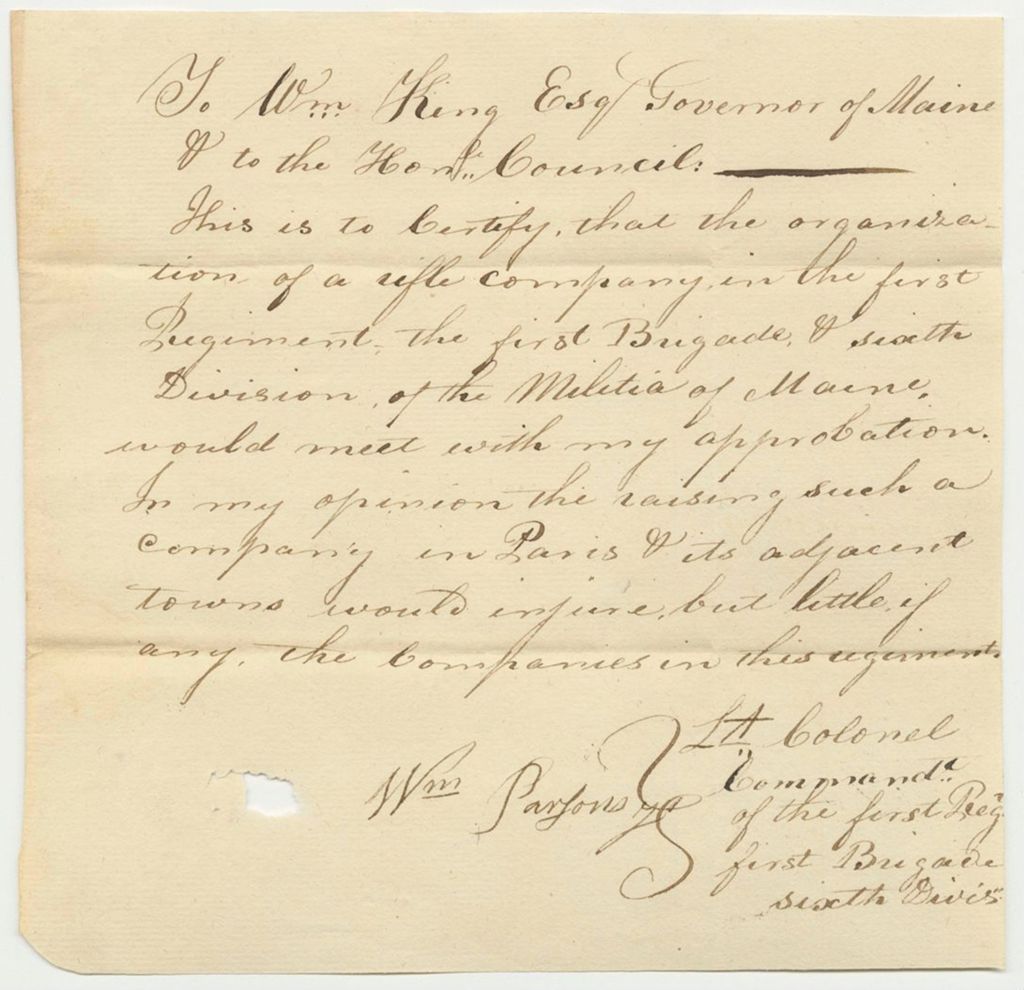 To Wm King Esqr Governor of Maine
& to the Honle Council:
This is to Certify, that the organiza-
tion of a rifle company, in the first
Regiment, the first Brigade, & sixth
Division, of the Militia of Maine,
would meet with my approbation.
In my opinion the raising such a
company in Paris & its adjacent
towns would injure, but little, if
any, the Companies in this regiment.
Wm Parsons Jr
Lt Colonel
Commandt
of the first Reg
first Brigade
sixth Divisn